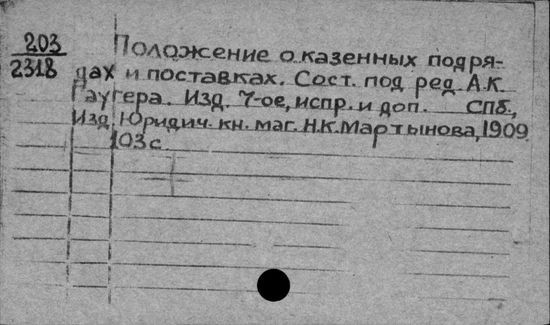 203
2318
Положение о казенных подря-
дах и поставках. Сост. под ред. А.К.
Гаугера. Изд. 7-ое, испр. и доп. СПб.,
Изд. Юридич. кн. маг. Н.К. Мартынова, 1909
103 с.